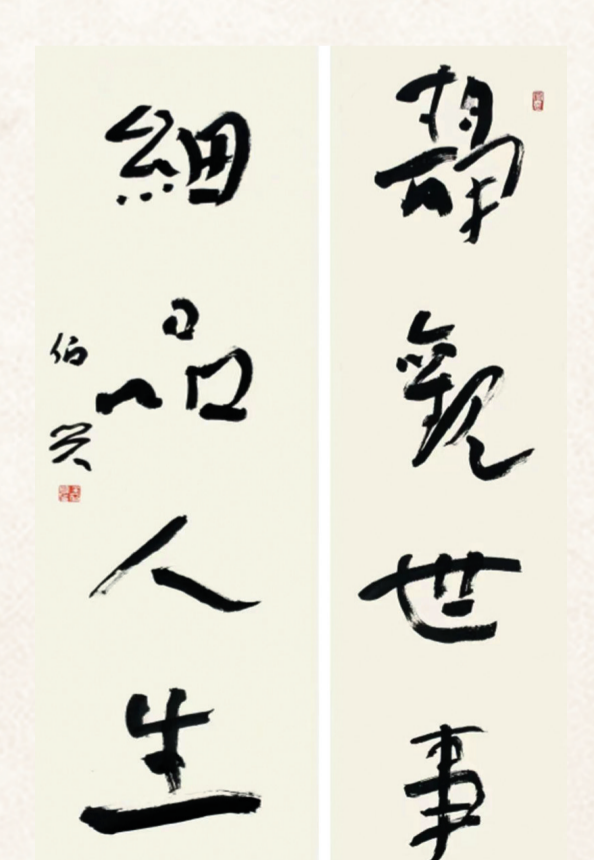 靜觀世事
細品人生
伯兴